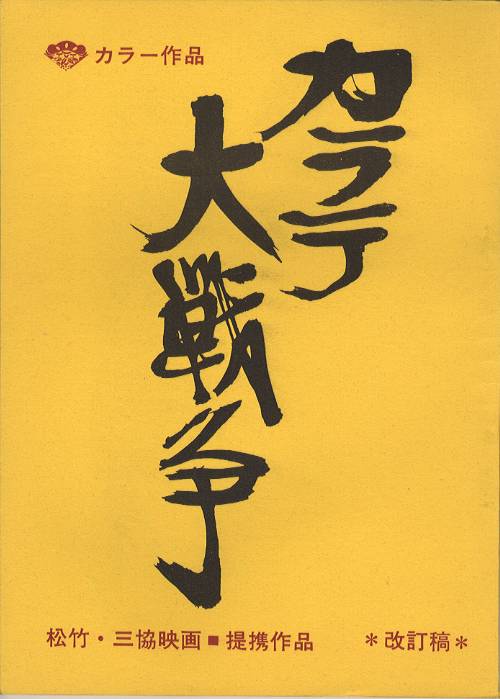 カラー作品
カラテ
大戦争
松竹・三協映画■提携作品 ＊改訂稿＊